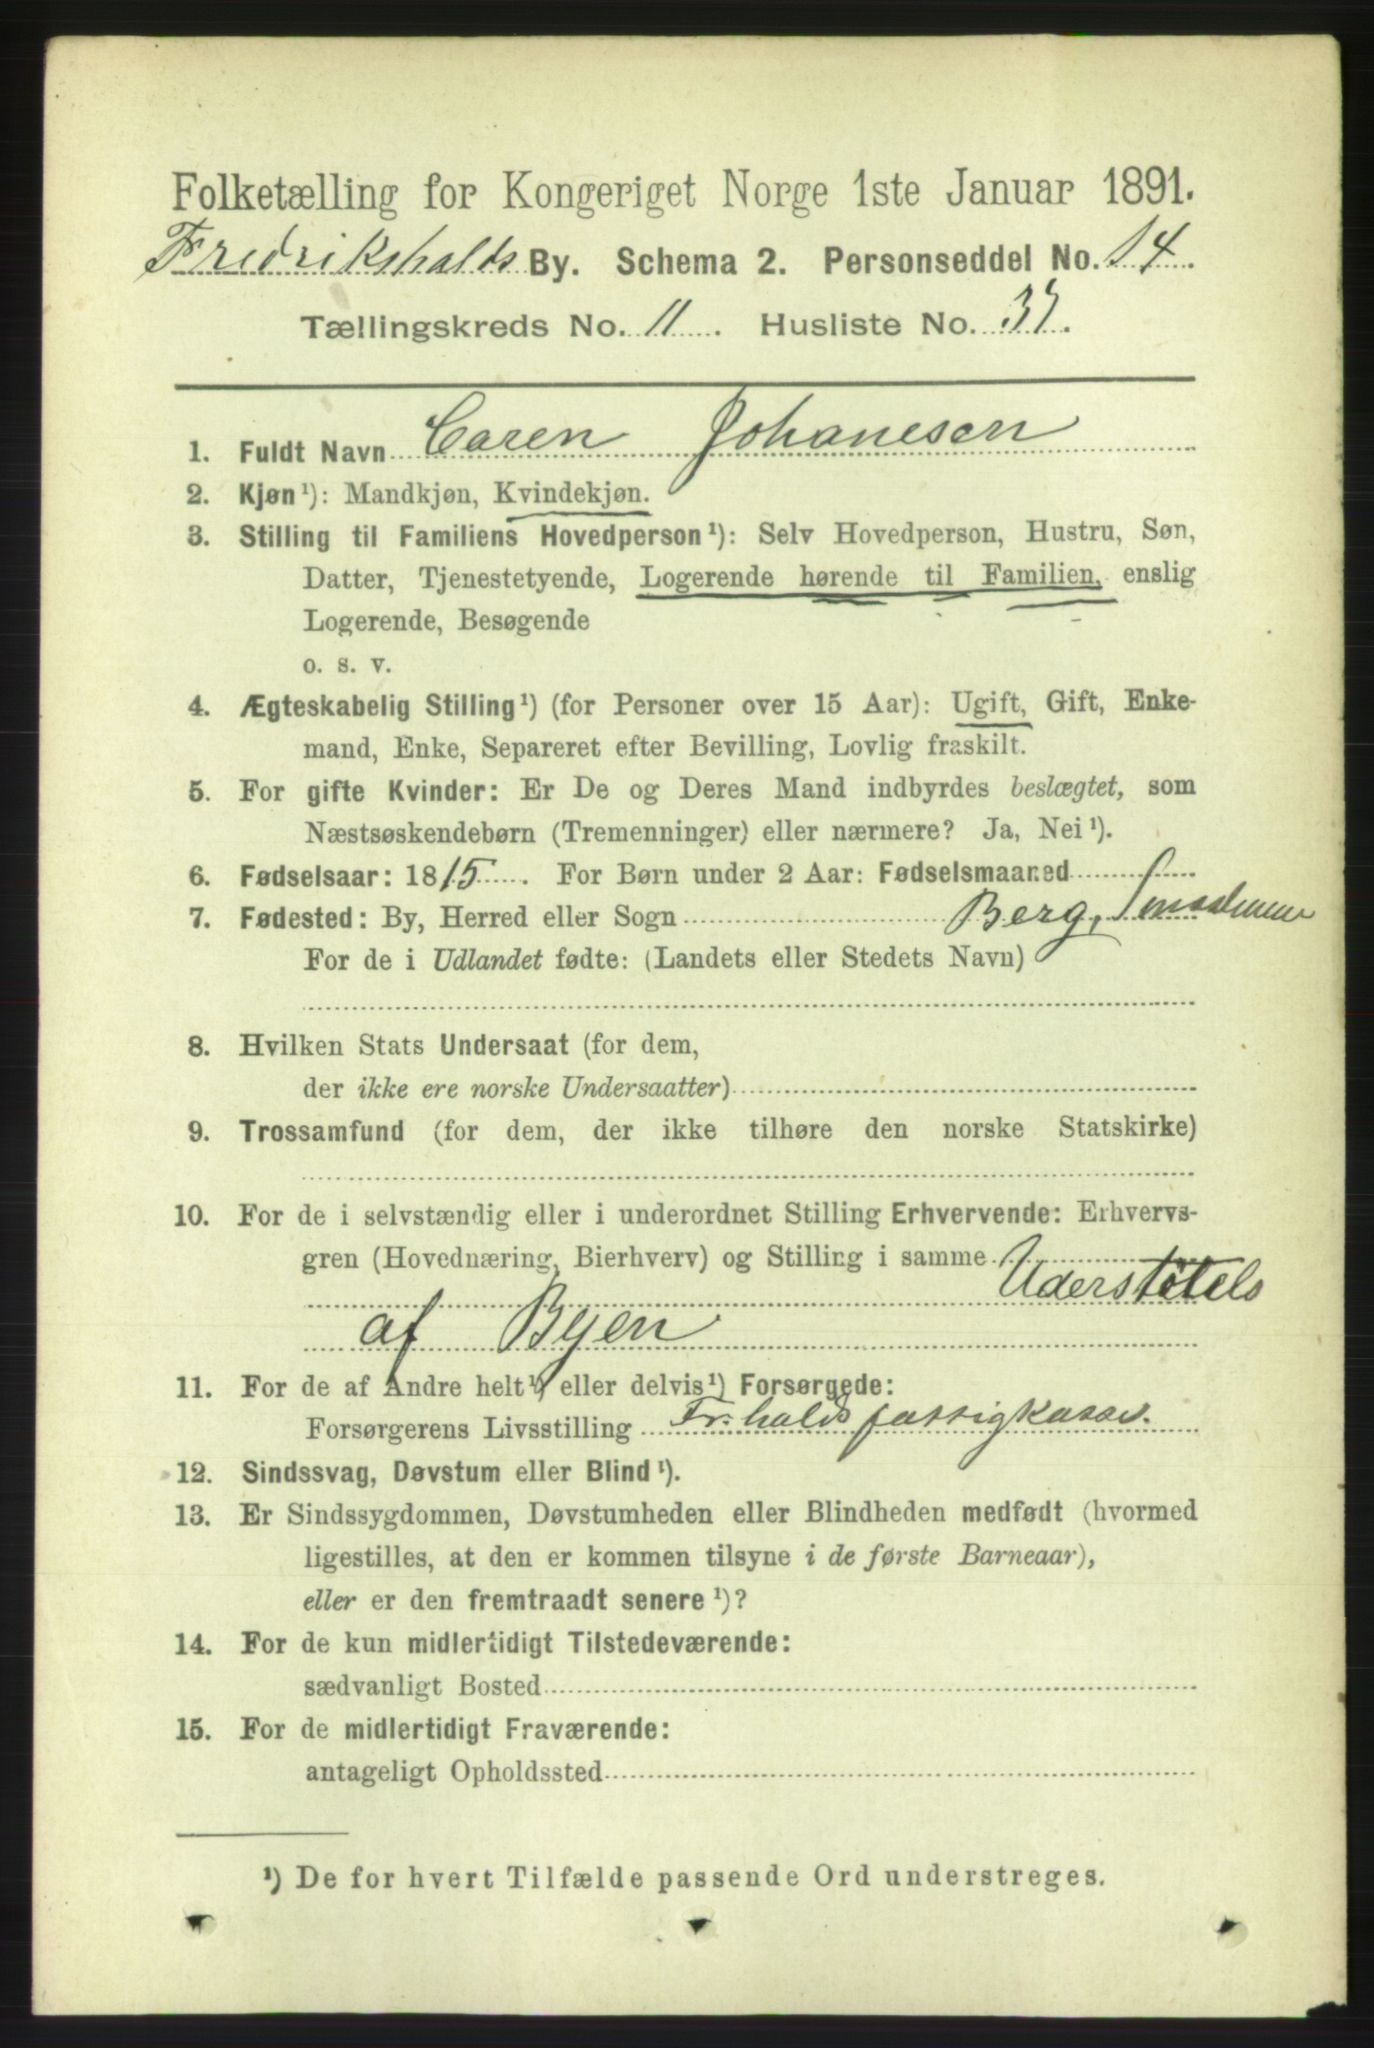 Folketælling for Kongeriget Norge 1ste Januar 1891.
Fredrikshalds By. Schema 2. Personseddel No. 14.
Tællingskreds No. 11. Husliste No. 37.
1. Fuldt Navn Caren Johanesen
2. Kjøn¹): Mandkjøn, Kvindekjøn.
3. Stilling til Familiens Hovedperson¹): Selv Hovedperson, Hustru, Søn,
Datter, Tjenestetyende, Logerende hørende til Familien, enslig
Logerende, Besøgende
o. s. v.
4. Ægteskabelig Stilling¹) (for Personer over 15 Aar): Ugift, Gift, Enke-
mand, Enke, Separeret efter Bevilling, Lovlig fraskilt.
5. For gifte Kvinder: Er De og Deres Mand indbyrdes beslægtet, som
Næstsøskendebørn (Tremenninger) eller nærmere? Ja, Nei¹).
6. Fødselsaar: 1815. For Børn under 2 Aar: Fødselsmaaned
7. Fødested: By, Herred eller Sogn Berg, Smaalenene
For de i Udlandet fødte: (Landets eller Stedets Navn)
8. Hvilken Stats Undersaat (for dem,
der ikke ere norske Undersaatter)
9. Trossamfund (for dem, der ikke tilhøre den norske Statskirke)
10. For de i selvstændig eller i underordnet Stilling Erhvervende: Erhvervs-
gren (Hovednæring, Bierhverv) og Stilling i samme
Uderstøtels
af Byen
11. For de af Andre helt¹) eller delvis¹) Forsørgede:
Forsørgerens Livsstilling Fr.halds fattigkasse.
12. Sindssvag, Døvstum eller Blind¹).
13. Er Sindssygdommen, Døvstumheden eller Blindheden medfødt (hvormed
ligestilles, at den er kommen tilsyne i de første Barneaar),
eller er den fremtraadt senere¹)?
14. For de kun midlertidigt Tilstedeværende:
sædvanligt Bosted
15. For de midlertidigt Fraværende:
antageligt Opholdssted
¹) De for hvert Tilfælde passende Ord understreges.